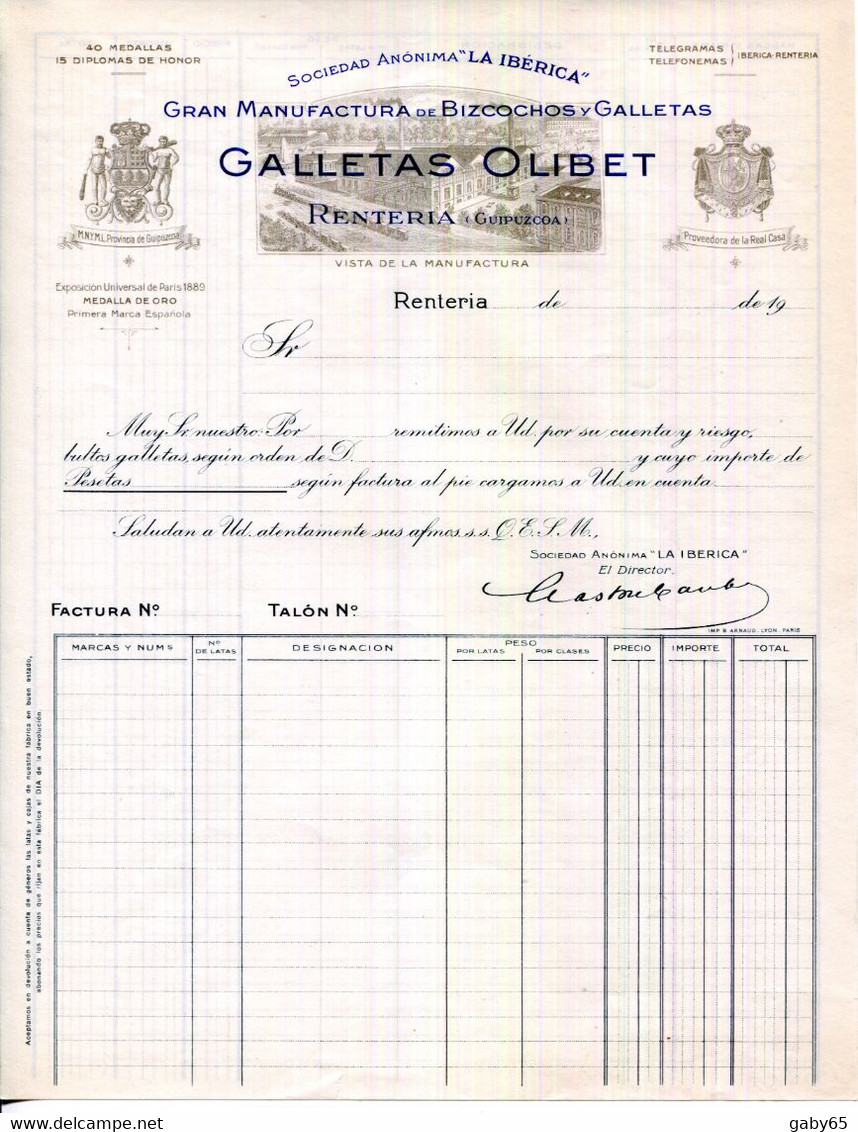 40 MEDALLAS
15 DIPLOMAS DE HONOR
SOCIEDAD ANÓNIMA "LA IBÉRICA"
TELEGRAMAS
TELEFONEMAS
IBERICA-RENTERIA
GRAN MANUFACTURA DE BIZCOCHOS Y GALLETAS
GALLETAS OLIBET
RENTERIA (GUIPUZCOA)
M.N.Y.M.L. Provincia de Guipuzcoa
Proveedora de la Real Casa
VISTA DE LA MANUFACTURA
Exposición Universal de Paris 1889
MEDALLA DE ORO
Primera Marca Española
Renteria de de 19
Sr
Muy Sr. nuestro: Por remitimos a Ud. por su cuenta y riesgo,
bultos galletas, según orden de D. y cuyo importe de
Pesetas según factura al pie cargamos a Ud. en cuenta
Saludan a Ud. atentamente sus afmos. s.s. Q.E.S.M.,
SOCIEDAD ANÓNIMA "LA IBERICA"
El Director.
FACTURA Nº TALÓN Nº
IMP. B. ARNAUD. LYON. PARIS
MARCAS Y NUMS
Nº DE LATAS
DESIGNACION
PESO
POR LATAS
POR CLASES
PRECIO
IMPORTE
TOTAL
Aceptamos en devolución a cuenta de géneros las latas y cajas de nuestra fábrica en buen estado,
abonando los precios que rijan en esta fábrica el DIA de la devolución.
gaby65